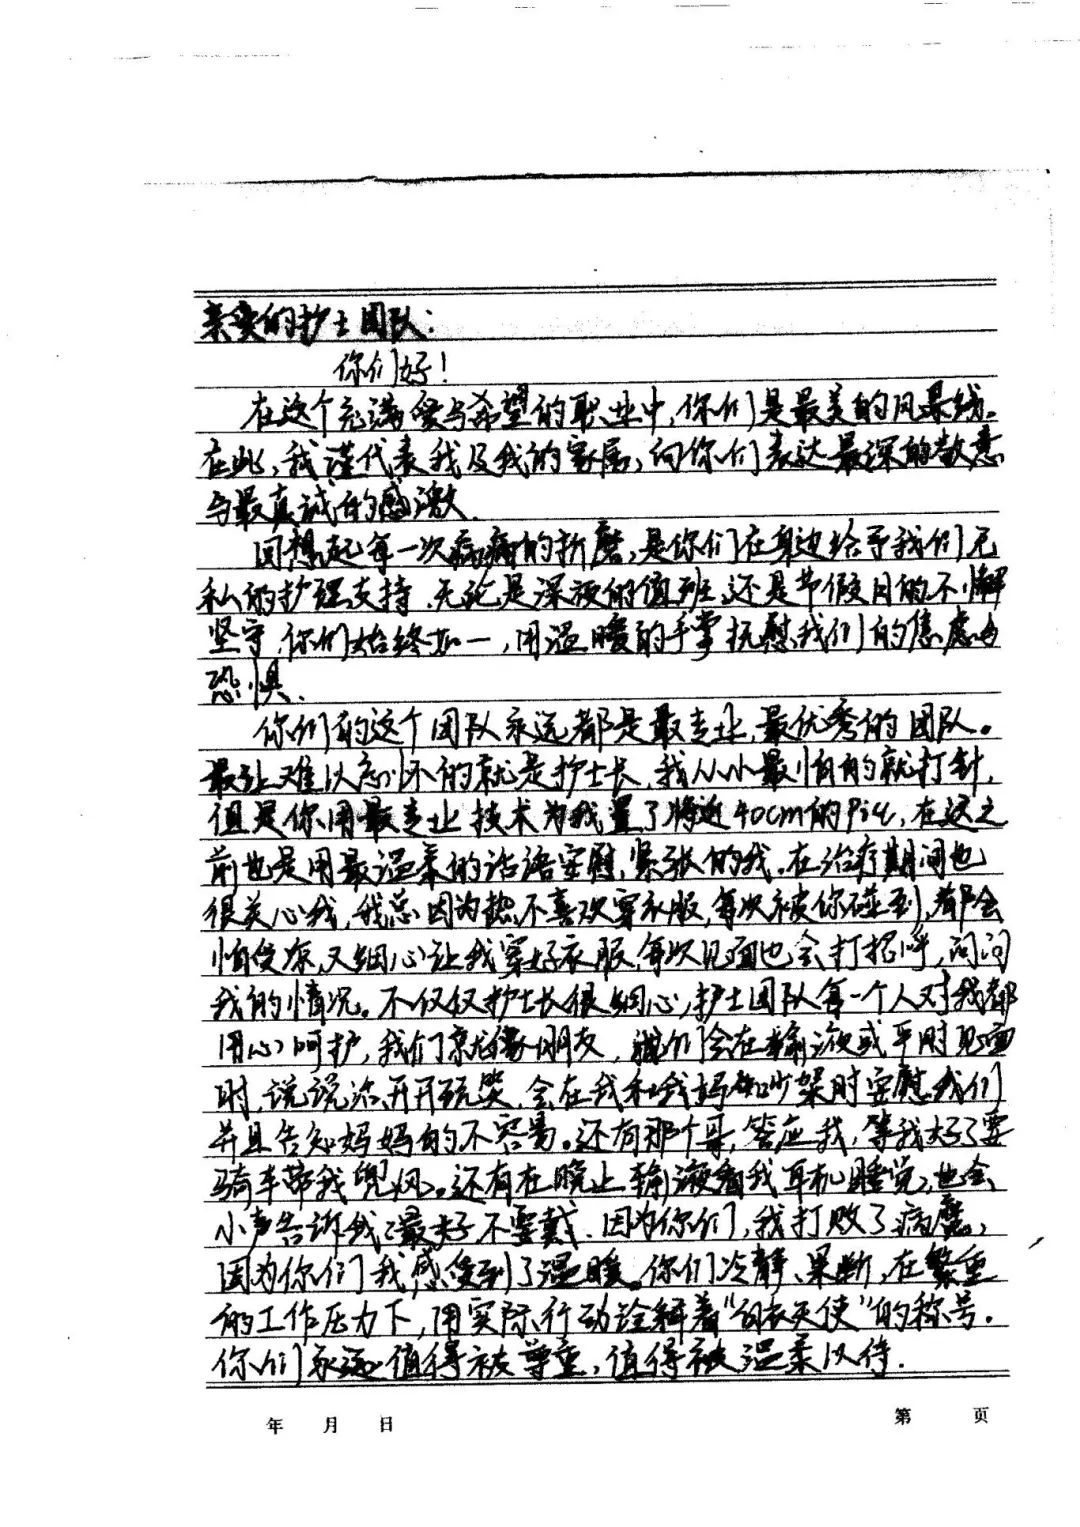 亲爱的护士团队:
你们好!
在这个充满爱与希望的职业中,你们是最美的风景线。
在此,我谨代表我及我的家属,向你们表达最深的敬意
与最真诚的感激.
回想起每一次病痛的折磨,是你们在身边给予我们无
私的护理支持.无论是深夜的值班,还是节假日的不懈
坚守,你们始终如一,用温暖的手掌抚慰我们的焦虑与
恐惧.
你们的这个团队永远都是最专业,最优秀的团队。
最让难以忘怀的就是护士长,我从小最怕的就打针,
但是你用最专业技术为我置了将近40cm的Picc,在这之
前也是用最温柔的话语安慰,紧张的我。在治疗期间也
很关心我,我总因为热不喜欢穿衣服,每次被你碰到,都会
怕受凉,又细心让我穿好衣服,每次见面也会打招呼,问问
我的情况。不仅仅护士长很细心,护士团队每一个人对我都
用心呵护,我们就像朋友,她们会在输液或平时见面
时,说说话,开开玩笑,会在我和我妈妈吵架时安慰我们
并且告知妈妈的不容易。还有那个哥,答应我,等我好了要
骑车带我兜风。还有在晚上输液看我耳机睡觉,也会
小声告诉我:最好不要戴.因为你们,我打败了病魔,
因为你们我感受到了温暖。你们冷静、果断,在繁重
的工作压力下,用实际行动诠释着“白衣天使”的称号。
你们永远值得被尊重,值得被温柔以待.
年 月 日 第 页